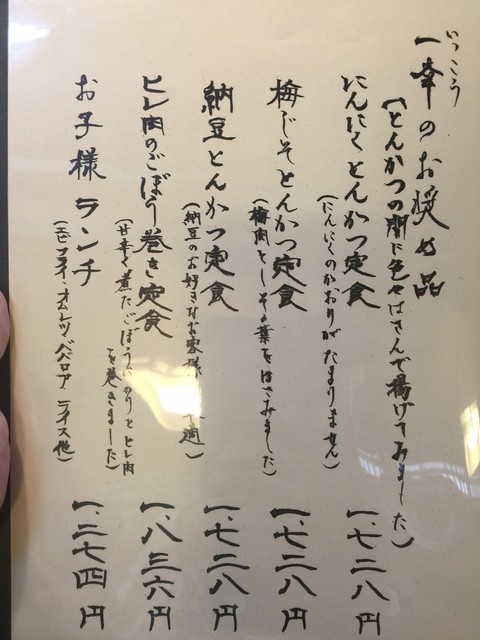 いっこう
一幸のお奨め品
(とんかつの間に色々はさんで揚げてみました)
にんにくとんかつ定食 一、七二八円
(にんにくのかおりがたまりません)
梅じそとんかつ定食 一、七二八円
(梅肉としその葉をはさみました)
納豆とんかつ定食 一、七二八円
(納豆のお好きなお客様 適)
ヒレ肉のごぼう巻き定食 一、八三六円
(甘辛く煮たごぼうのりとヒレ肉
を巻きました)
お子様ランチ 一、二七四円
(エビフライ・オムレツ・ババロア ライス他)